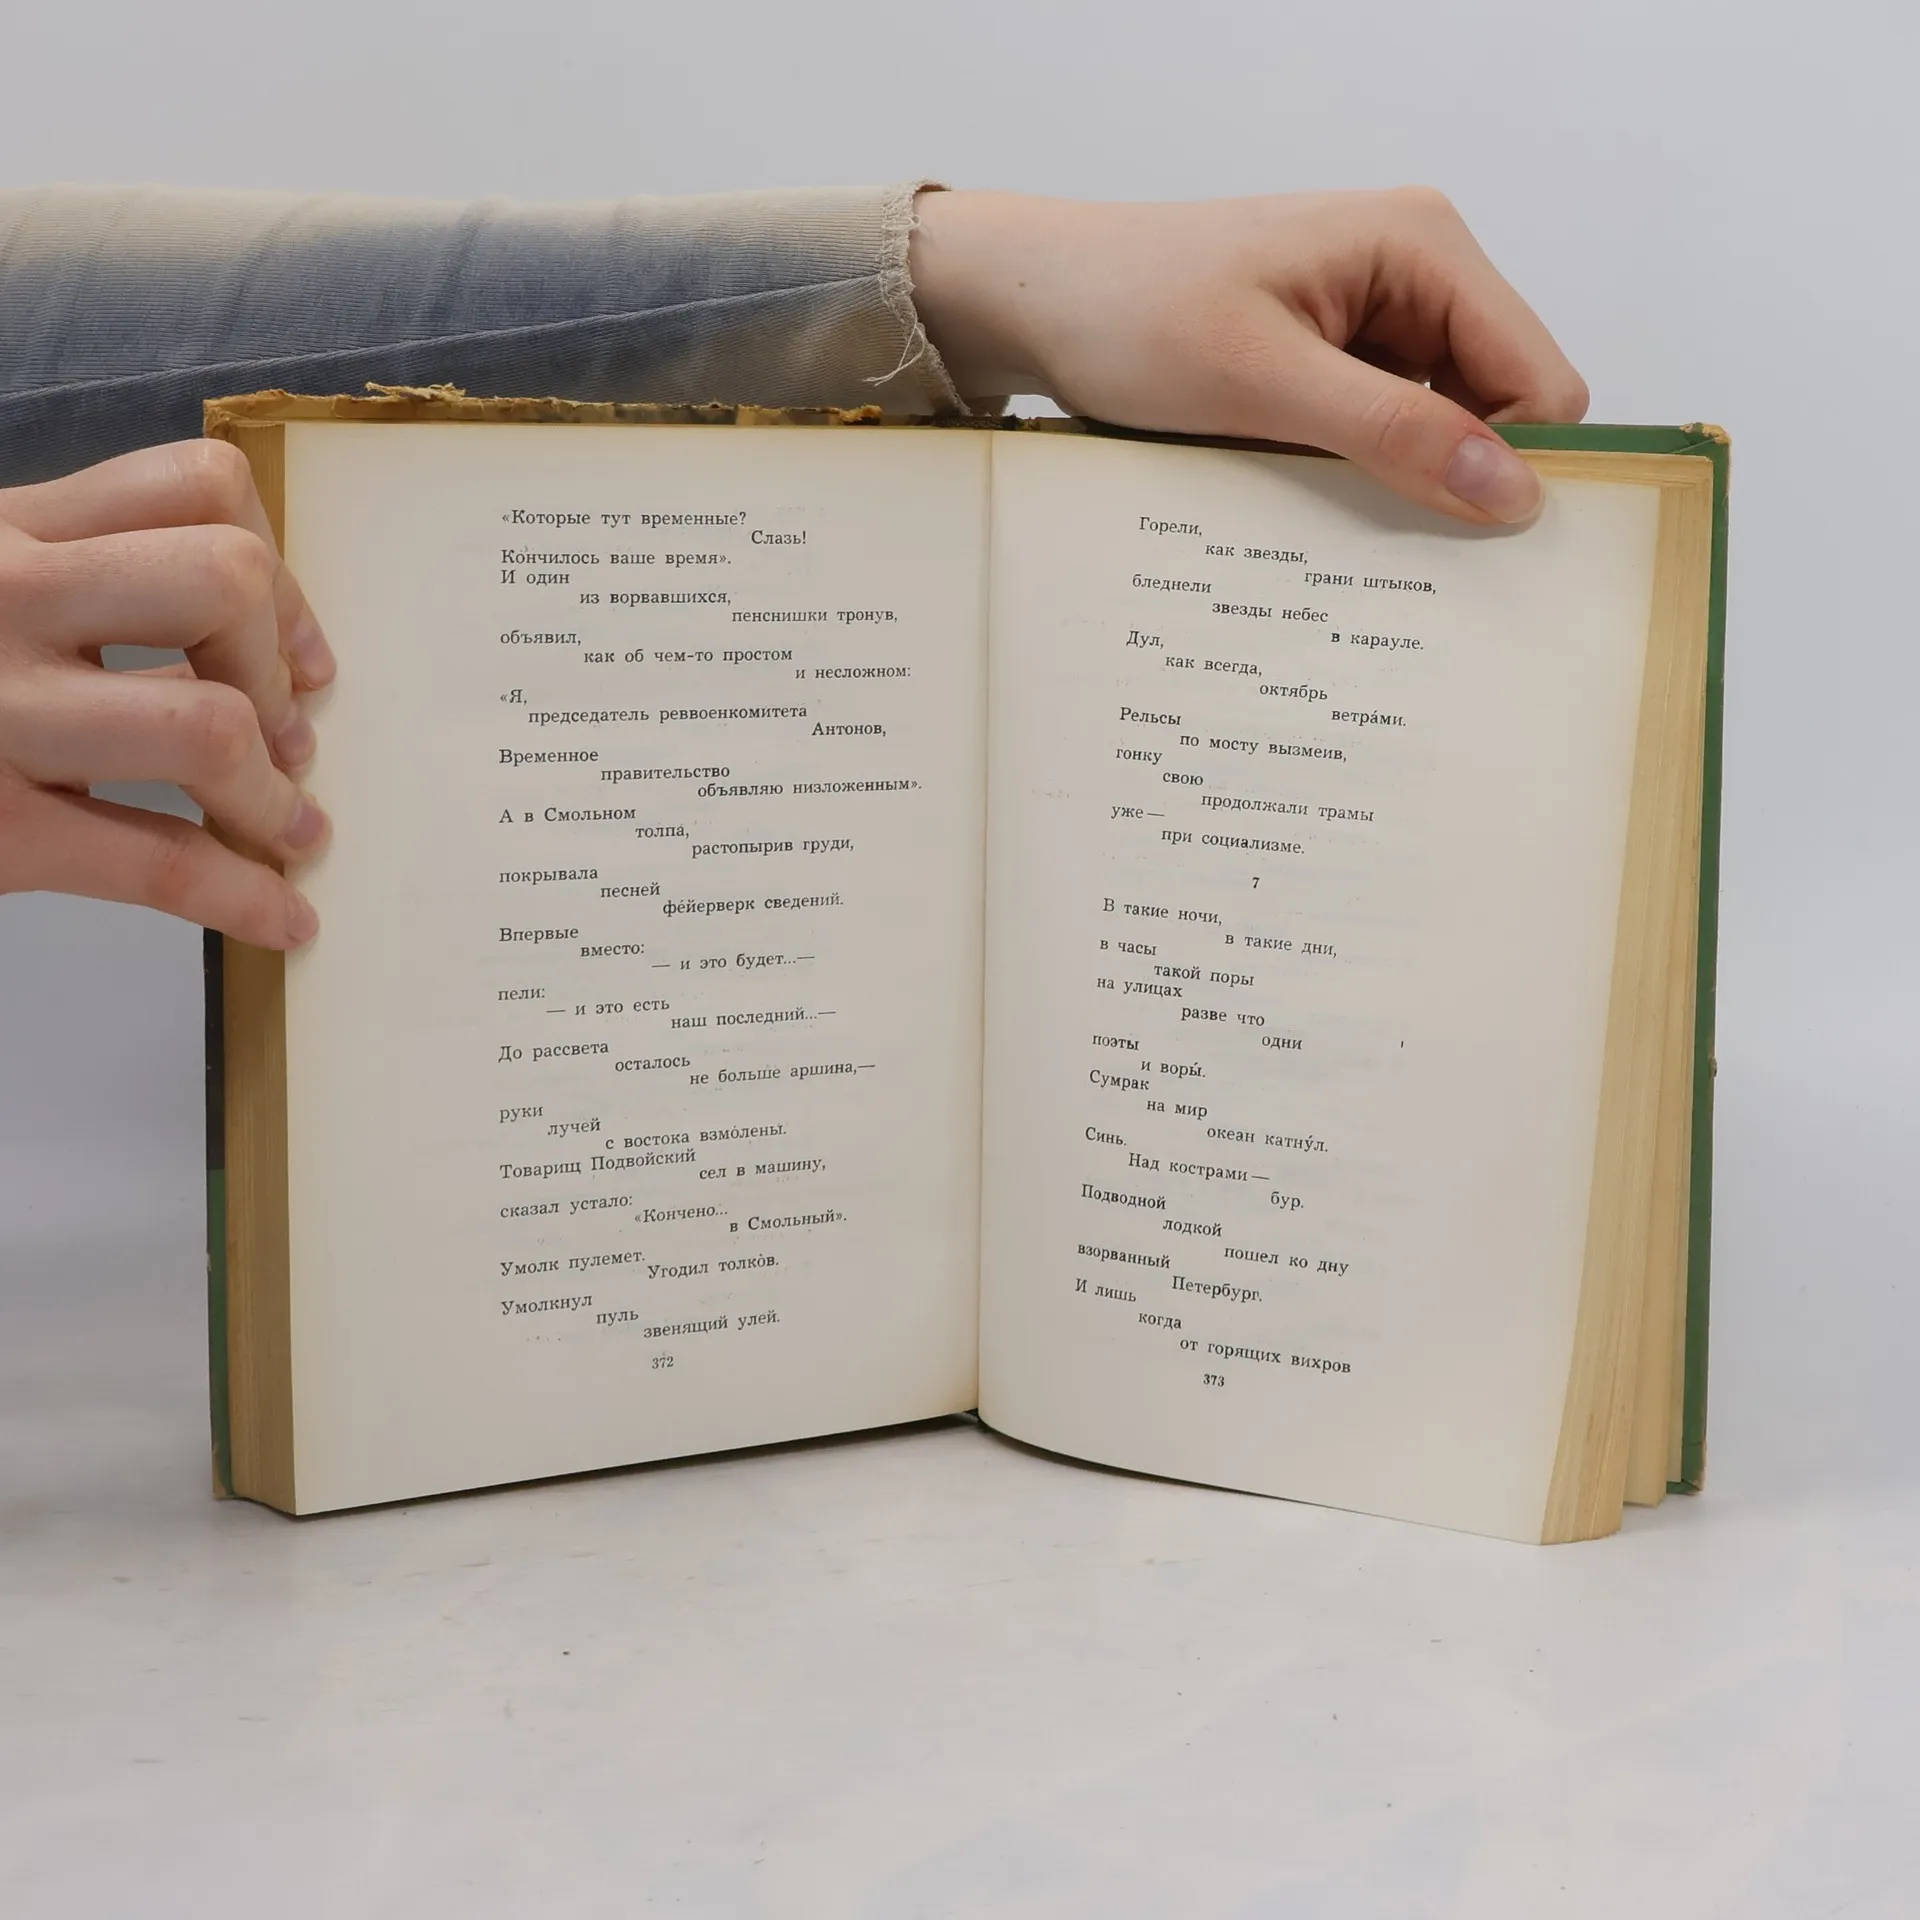 «Которые тут временные?
Слазь!
Кончилось ваше время».
И один
из ворвавшихся,
пенснишки тронув,
объявил,
как об чем-то простом
и несложном:
«Я,
председатель реввоенкомитета
Антонов,
Временное
правительство
объявляю низложенным».
А в Смольном
толпа,
растопырив груди,
покрывала
песней
фейерверк сведений.
Впервые
вместо:
— и это будет...—
пели:
— и это есть
наш последний...—
До рассвета
осталось
не больше аршина,—
руки
лучей
с востока взмолены.
Товарищ Подвойский
сел в машину,
сказал устало:
«Кончено...
в Смольный».
Умолк пулемет.
Угодил толков.
Умолкнул
пуль
звенящий улей.
372
Горели,
как звезды,
грани штыков,
бледнели
звезды небес
в карауле.
Дул,
как всегда,
октябрь
ветра́ми.
Рельсы
по мосту вызмеив,
гонку
свою
продолжали трамы
уже —
при социализме.
7
В такие ночи,
в такие дни,
в часы
такой поры
на улицах
разве что
одни
поэты
и воры́.
Сумрак
на мир
океан катну́л.
Синь.
Над кострами —
бур.
Подводной
лодкой
пошел ко дну
взорванный
Петербург.
И лишь
когда
от горящих вихров
373